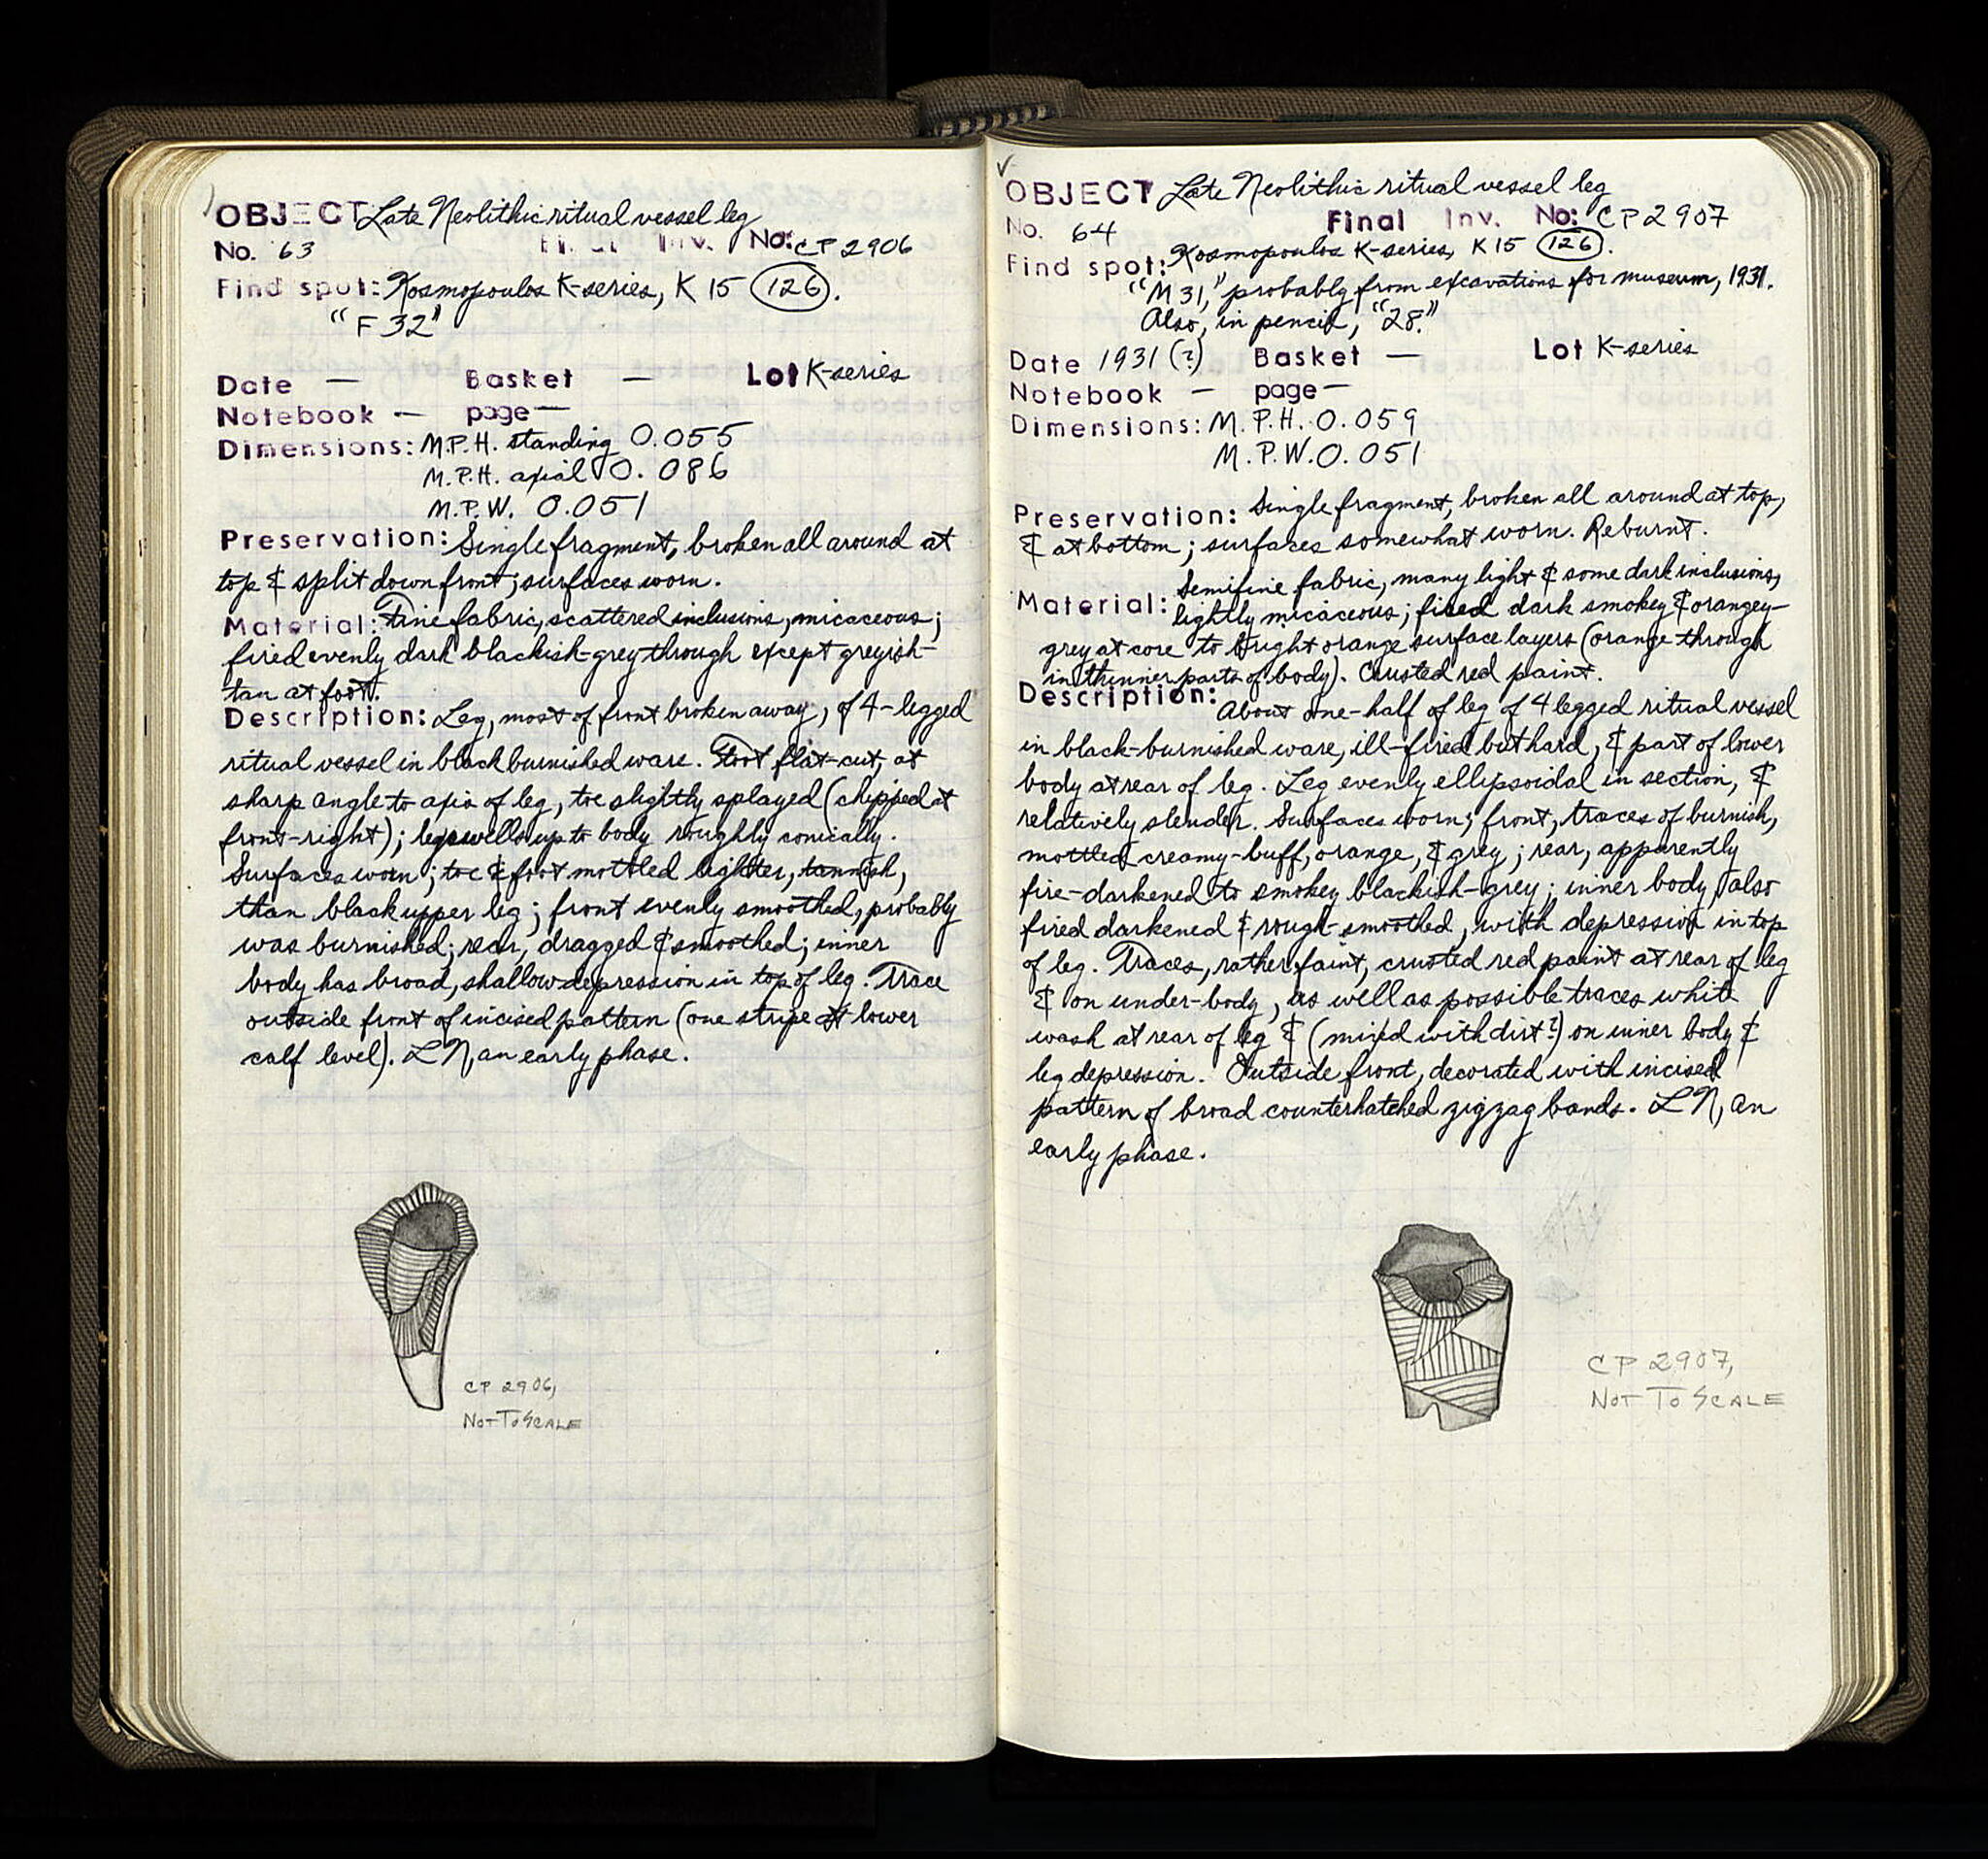 OBJECT Late Neolithic ritual vessel leg
No. 63 Final Inv. No: CP 2906
Find spot: Kosmopoulos K-series, K 15 (126).
"F 32"
Date — Basket — Lot K-series
Notebook — page —
Dimensions: M.P.H. standing 0.055
M.P.H. axial 0.086
M.P.W. 0.051
Preservation: Single fragment, broken all around at
top & split down front; surfaces worn.
Material: Fine fabric, scattered inclusions, micaceous;
fired evenly dark blackish-grey through except greyish-
tan at foot.
Description: Leg, most of front broken away, of 4-legged
ritual vessel in black burnished ware. Foot flat-cut, at
sharp angle to axis of leg, toe slightly splayed (chipped at
front-right); leg swells up to body roughly conically.
Surfaces worn; toe & foot mottled lighter, tannish,
than black upper leg; front evenly smoothed, probably
was burnished; rear, dragged & smoothed; inner
body has broad, shallow depression in top of leg. Trace
outside front of incised pattern (one stripe at lower
calf level). LN, an early phase.
CP 2906,
NOT TO SCALE
✓
OBJECT Late Neolithic ritual vessel leg
No. 64 Final Inv. No: CP 2907
Find spot: Kosmopoulos K-series, K 15 (126).
"M 31," probably from excavations for museum, 1931.
Also, in pencil, "28."
Date 1931 (?) Basket — Lot K-series
Notebook — page —
Dimensions: M.P.H. 0.059
M.P.W. 0.051
Preservation: Single fragment, broken all around at top,
& at bottom; surfaces somewhat worn. Reburnt.
Semifine fabric, many light & some dark inclusions,
Material: lightly micaceous; fired dark smokey & orangey-
grey at core to bright orange surface layers (orange through
in thinner parts of body). Crusted red paint.
Description: About one-half of leg of 4 legged ritual vessel
in black-burnished ware, ill-fired but hard, & part of lower
body at rear of leg. Leg evenly ellipsoidal in section, &
relatively slender. Surfaces worn; front, traces of burnish,
mottled creamy-buff, orange, & grey; rear, apparently
fire-darkened to smokey blackish-grey; inner body also
fired darkened & rough-smoothed, with depression in top
of leg. Traces, rather faint, crusted red paint at rear of leg
& on under-body, as well as possible traces white
wash at rear of leg & (mixed with dirt?) on inner body &
leg depression. Outside front, decorated with incised
pattern of broad counterhatched zigzag bands. LN, an
early phase.
CP 2907,
NOT TO SCALE